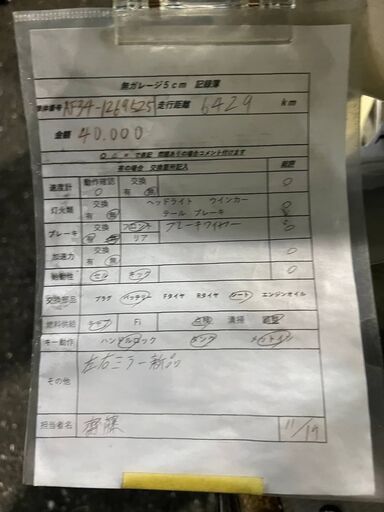 無ガレージ5cm 記録簿
車体番号 AF34-1269525 走行距離 6429 km
金額 40.000
で表記 問題ありの場合コメント付けます
有の場合 交換箇所記入 判定
速度計 動作確認 ○ 交換 有 無 ○
灯火類 交換 有 無 ヘッドライト ウインカー テール ブレーキ ○
ブレーキ 交換 有 無 フロント リア ブレーキワイヤー ○
加速力 交換 有 無 ○
始動性 セル キック ○
交換部品 プラグ バッテリー Fタイヤ Rタイヤ シート エンジンオイル
燃料供給 キャブ Fi 点検 清掃 調整
キー動作 ハンドルロック タンク メットイン
その他 左右ミラー新品
担当者名 齊藤 11/19